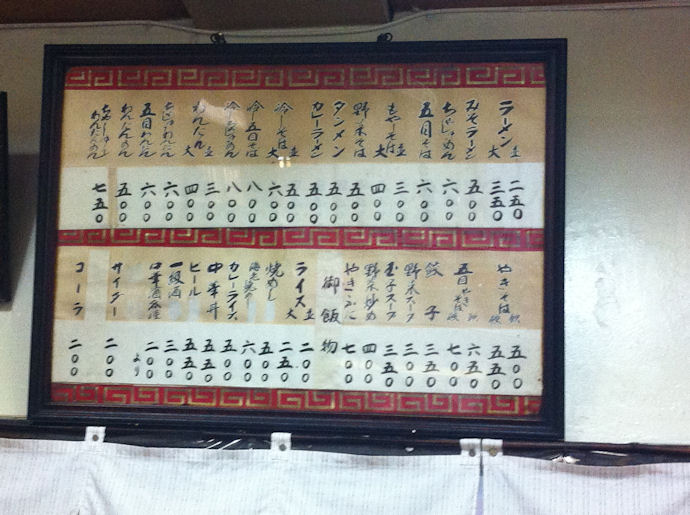 ラーメン 並 二五〇
大 三五〇
みそラーメン 五〇〇
ちゃしゅうめん 六〇〇
五目そば 六〇〇
もやしそば 並 三〇〇
大 四〇〇
野菜そば 五〇〇
タンメン 五〇〇
カレーラーメン 五〇〇
冷しそば 並 五〇〇
大 六〇〇
冷し五目そば 八〇〇
八〇〇
わんたん 並 三〇〇
大 四〇〇
六〇〇
五目わんたん 六〇〇
わんたんめん 五〇〇
ちゃーしゅー わんたんめん 七五〇
やきそば 軟 五〇〇
硬 五五〇
五目やきそば 軟 六五〇
硬 七〇〇
餃子 三五〇
野菜スープ 三〇〇
玉子スープ 三五〇
野菜炒め 四〇〇
七〇〇
御飯物
ライス 並 二〇〇
大 二五〇
焼めし 五〇〇
六〇〇
カレーライス 五〇〇
中華丼 五五〇
ビール 五五〇
一級酒 三〇〇
中華酒各種 二〇〇より
サイダー 二〇〇
コーラ 二〇〇